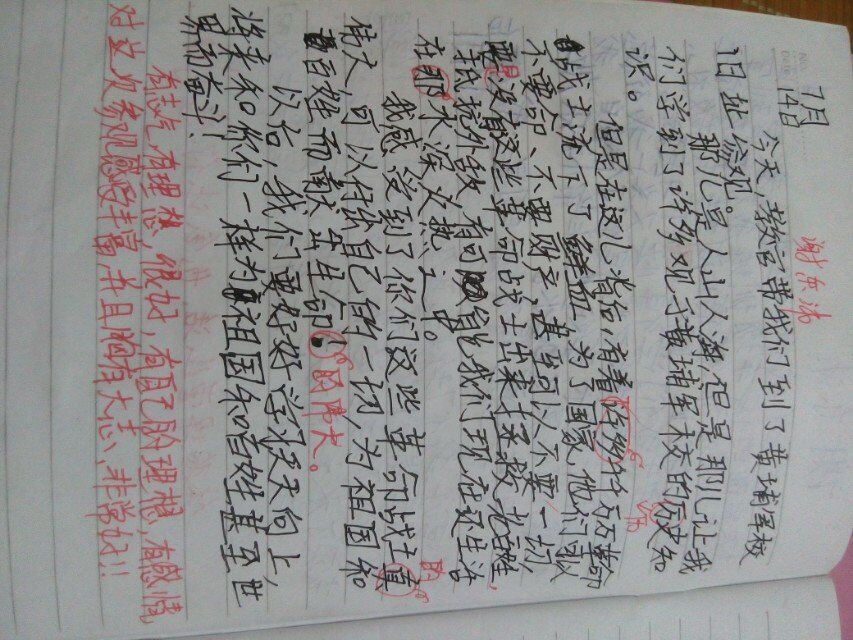 谢乐涛
7月14日
今天,教官带我们到了黄埔军校
旧址参观。
那儿是人山人海,但是那儿让我
们学到了许多观于黄埔军校的历史知
识。
但是在这儿肯佑,有着许多任历革命
战士流下了鲜血,为了国家,他们可以
不要命、不要财产,甚至可以不要一切,
要是没有这些革命战士出来拯救老百姓,
抵抗外敌,有可能我们现在还生活
在那水深火热之中。
我感受到了你们这些革命战士真
伟大,可以付你自己的一切,为祖国和
百姓而献出生命的伟大。
以后,我们要好好学习天天向上,
将来和你们一样为祖国和百姓甚至世
界而奋斗!
有志气,有理想,很好,有自己的理想,有感情
对这次参观感受丰富并且胸有大志、非常好!!